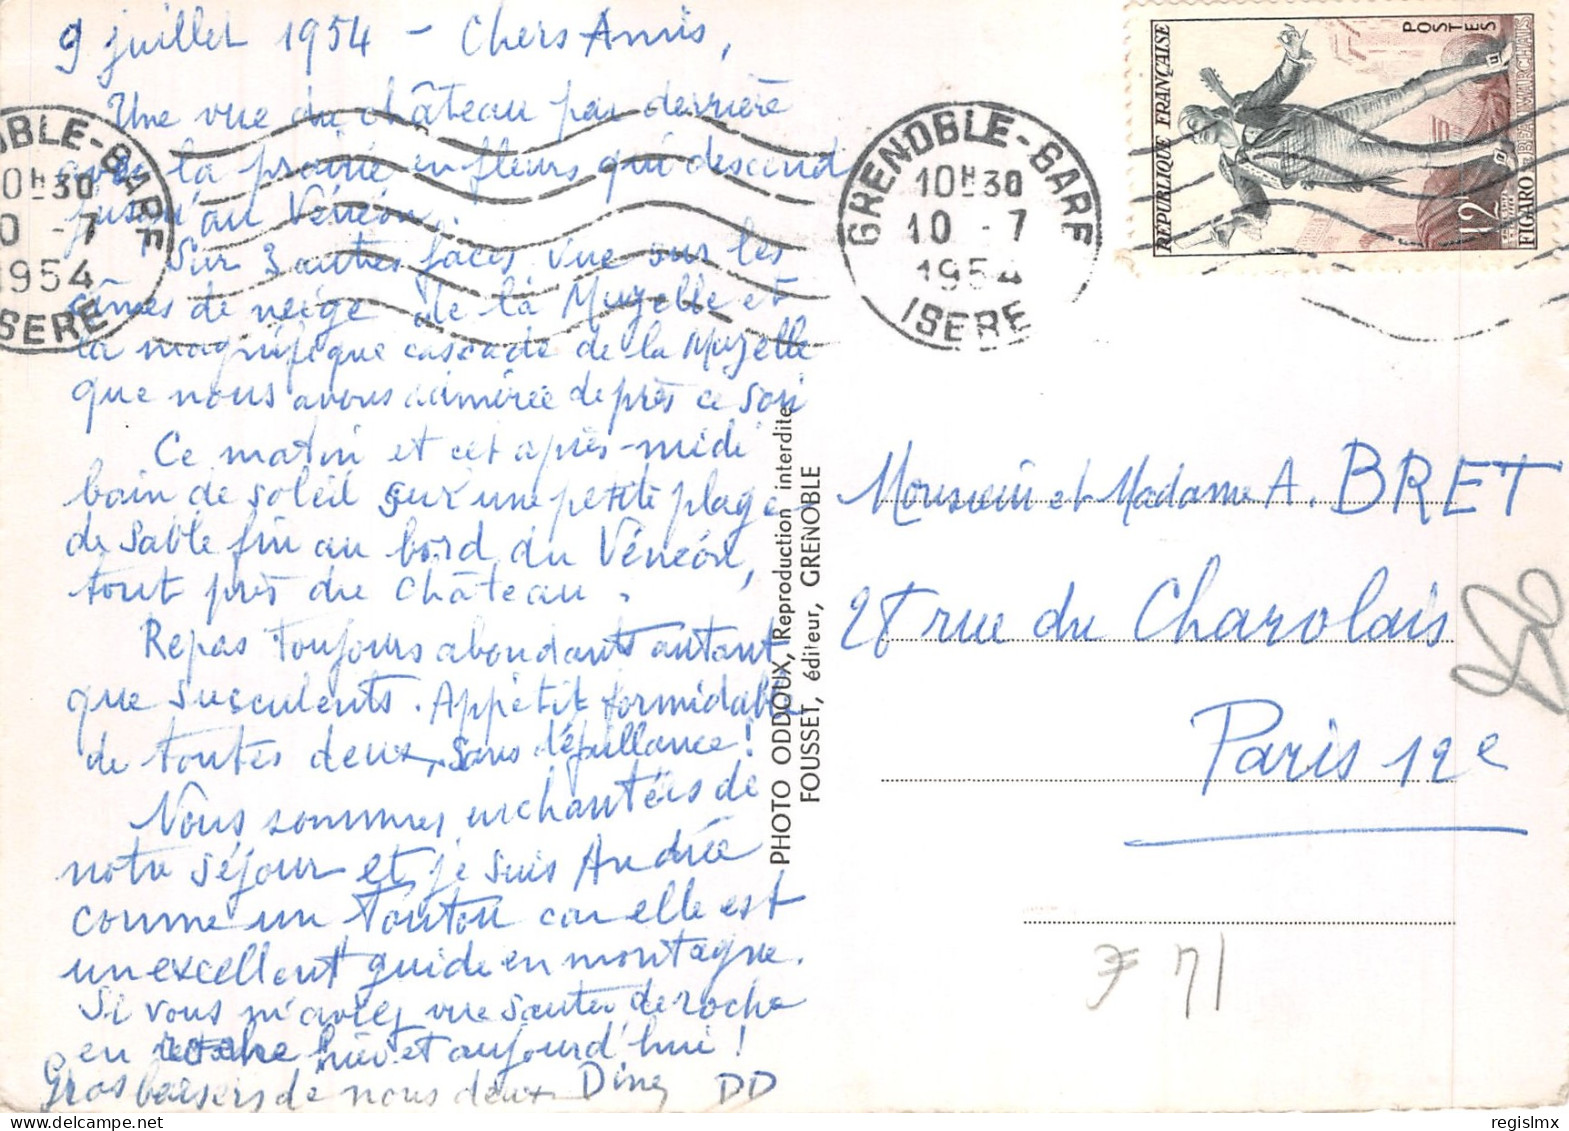 9 juillet 1954 - Chers Amis,
Une vue du château par derrière
avec la prairie en fleurs qui descend
jusqu'au Vénéon.
Sur 3 autres faces vue sur les
cîmes de neige de la Muzelle et
la magnifique cascade de la Muzelle
que nous avons admirée de près ce soir
Ce matin et cet après-midi
bain de soleil sur une petite plage
de sable fin au bord du Vénéon,
tout près du Château.
Repas toujours abondants autant
que succulents. Appétit formidable
de toutes deux, sans défaillance!
Nous sommes enchantées de
notre séjour et je suis Andrée
comme un toutou car elle est
un excellent guide en montagne.
Si vous m'aviez vue sauter de roche
en roche hier et aujourd'hui!
Gros baisers de nous deux Diny DD
OBLE-GARE
0H30
0 -7
1954
ISERE
GRENOBLE-GARE
10H30
10 -7
1954
ISERE
REPUBLIQUE FRANÇAISE
POSTES
12F
FIGARO BEAUMARCHAIS
PHOTO ODDOUX, Reproduction interdite
FOUSSET, éditeur, GRENOBLE
Monsieur et Madame A. BRET
28 rue du Charolais
Paris 12e
71
regislmx